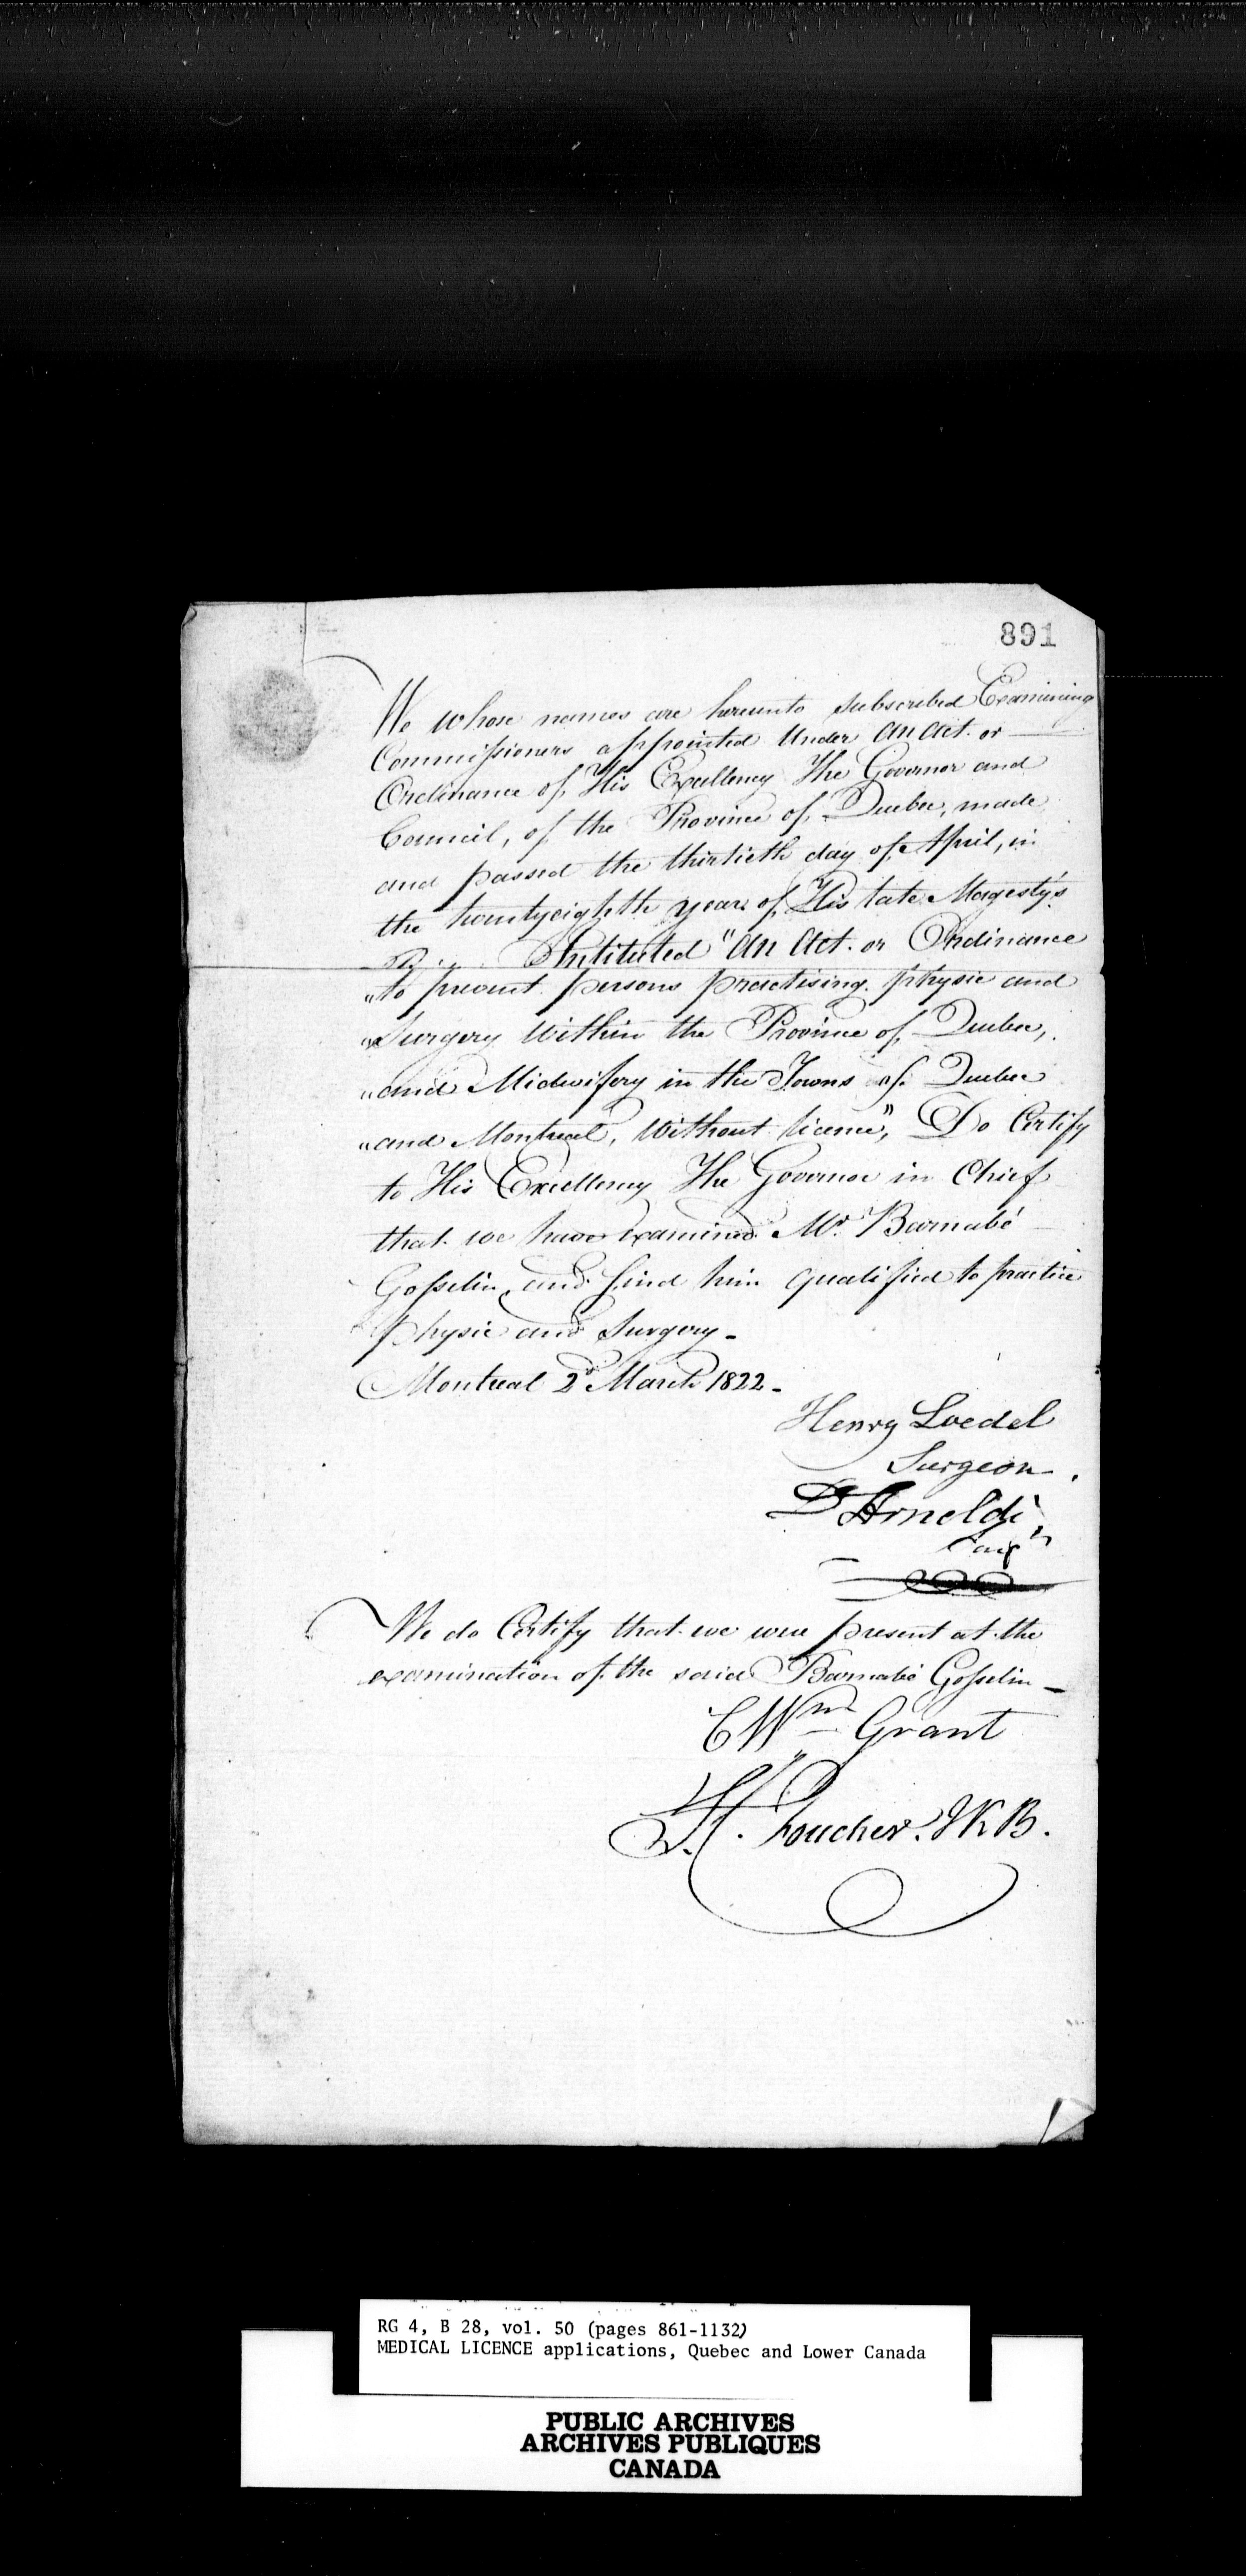 891
We whose names are hereunto subscribed Examining
Commissioners appointed Under An Act or
Ordinance of His Excellency The Governor and
Council, of the Province of Quebec, made
and passed the thirtieth day of April, in
the twentyeighth year of His late Magesty's
Intituted "An Act or Ordinance
"to prevent persons practising physic and
"Surgery Within the Province of Quebec,
"and Midwifery in the Towns of Quebec
"and Montreal, Without licence", Do Certify
to His Excellency The Governor in Chief
that we have examined Mr. Barnabé
Gosselin and find him qualified to practice
physic and Surgery -
Montreal 2d March 1822 -
Henry Loedel
Surgeon.
Dl Arnoldi,
We do Certify that we were present at the
examination of the said Barnabé Gosselin -
C Wm Grant
L. C. Foucher. J K B.
RG 4, B 28, vol. 50 (pages 861-1132)
MEDICAL LICENCE applications, Quebec and Lower Canada
PUBLIC ARCHIVES
ARCHIVES PUBLIQUES
CANADA